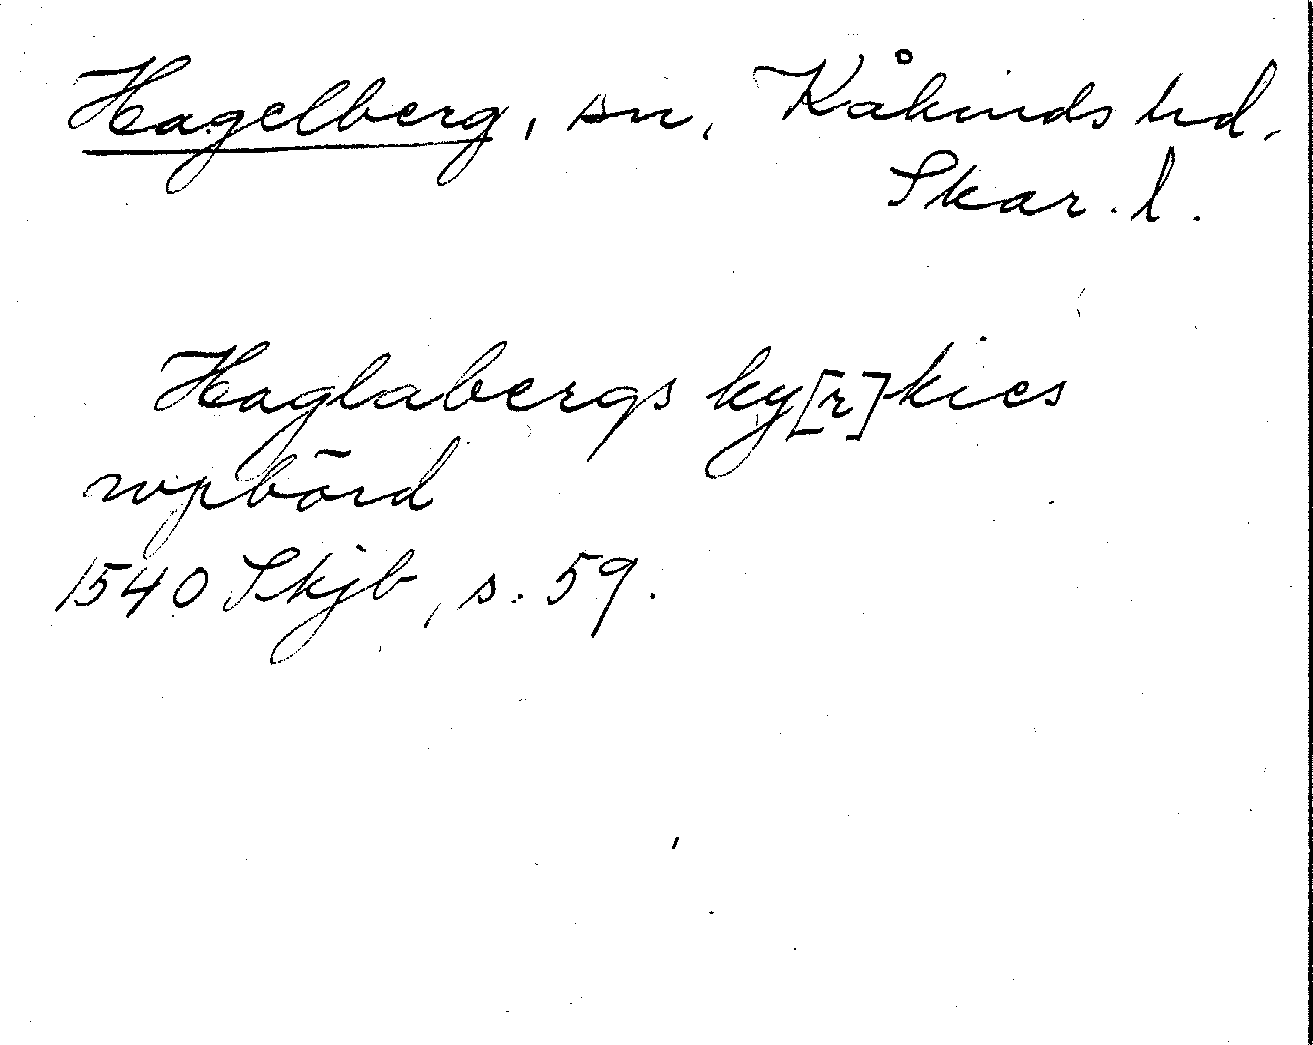 Hagelberg, sn, Kåkinds hd,
Skar. l.
Haglabergs ky[r]kies
wpbörd
1540 Skjb, s. 59.